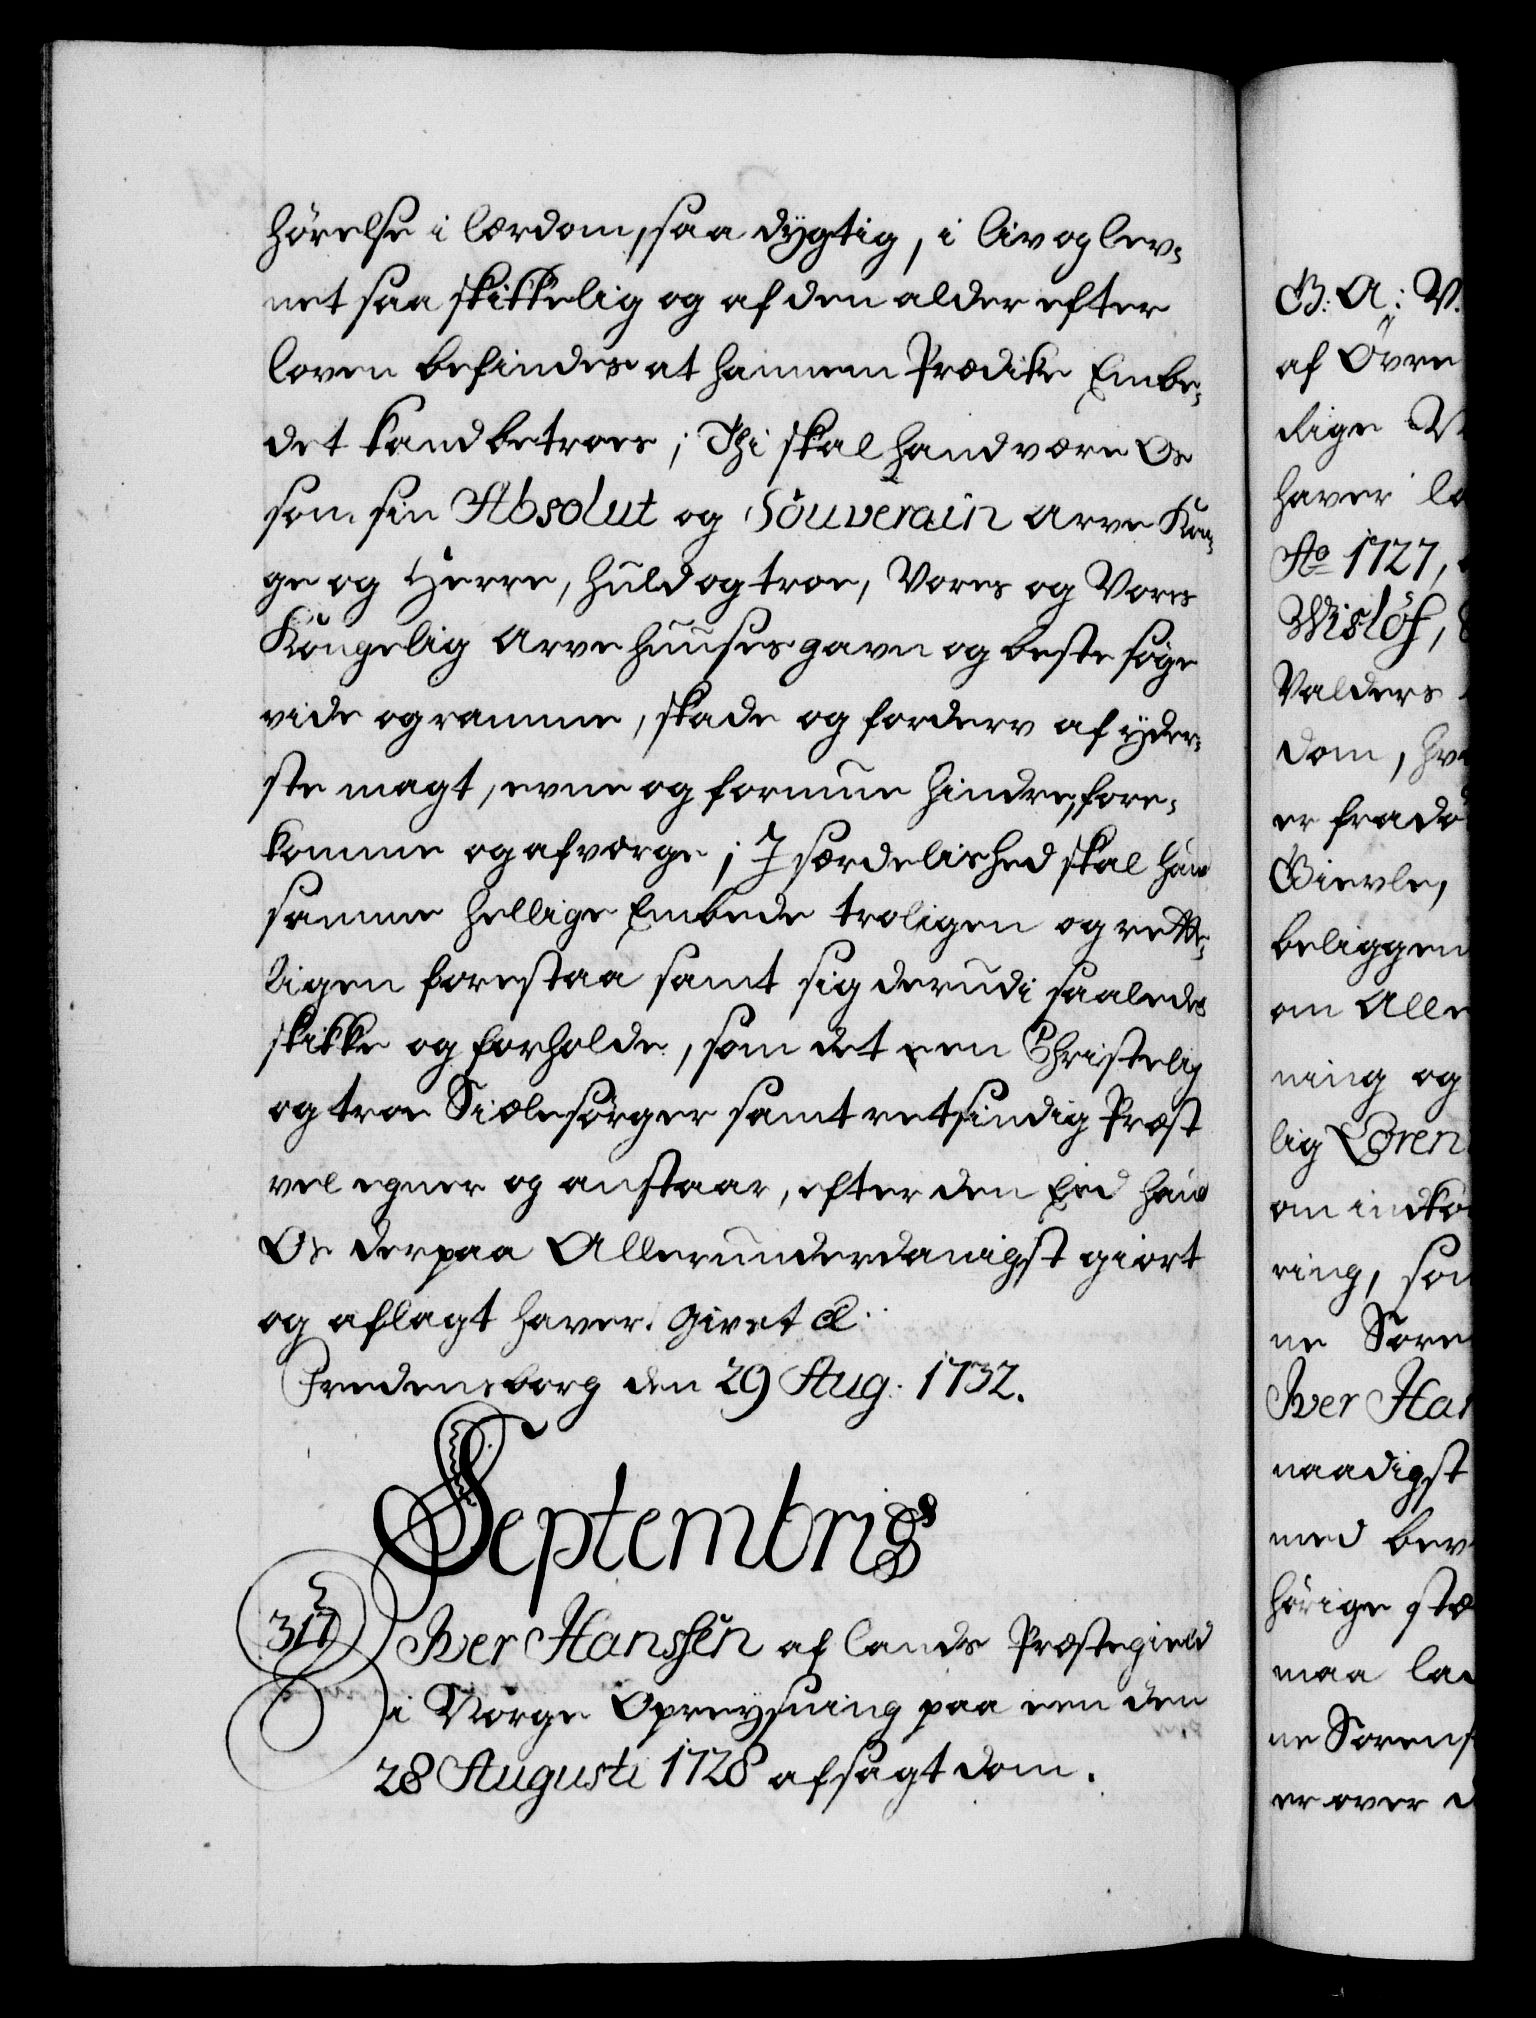 hörelse i lærdom, saa dygtig, i liv og lev-
net saa skikkelig og af den alder efter
loven befindes at hannem Prædike Embe-
det kand betroes; Thi skal hand være Os
som sin Absolut og Souverain Arve Kon-
ge og Herre, huld og troe, Vores og Vores
Kongelig Arve huuses gavn og beste søge
vide og ramme, skade og forderv af yder-
ste magt, evne og formue hindre, fore-
komme og afværge; I særdelished skal hand
samme hellige Embede troligen og rette-
ligen forestaa samt sig derudi saaledes
skikke og forholde, som det een Christelig
og troe Siælesørger samt retsindig Præst
vel egner og anstaar, efter den Eed hand
Os derpaa Allerunderdanigst giort
og aflagt haver. Givet &c:
Fredensborg den 29 Aug. 1732.
Septembris
317
Iver Hanssen af Lands Præstegield
i Norge Opreysning paa een den
28 Augusti 1728 afsagt dom.
G: A: V.
af Övre
dige
haver
Ao 1727,
Wislöf,
Valders
dom,
er
Gievle,
beliggen
om Alle
ning og
lig Sören
om indkö
ring, som
ne Sören
Iver Han
naadigst
med bev
hörige stæ
maa lad
ne Sorens
er over d